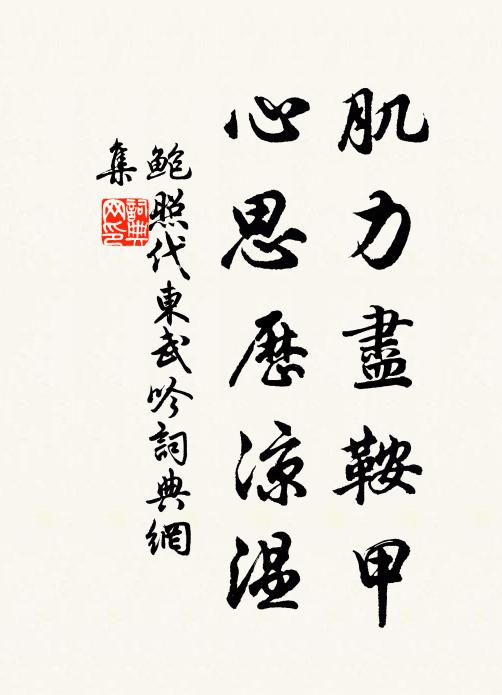 肌力盡鞍甲
心思歷涼温
鮑照代東武吟詞典網
集
詞典網印